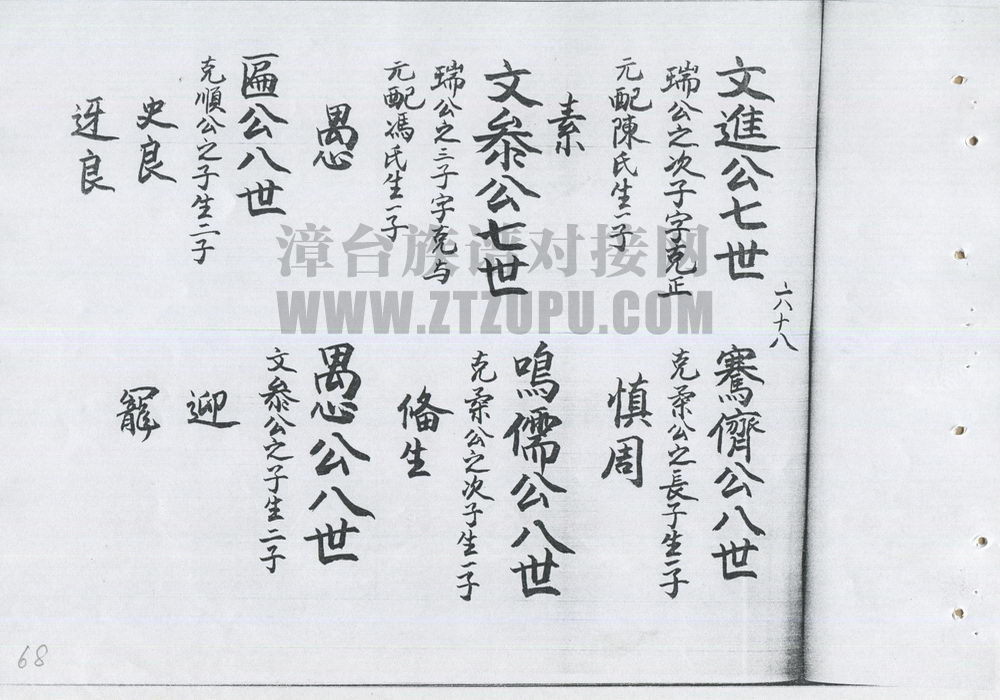 六十八
文進公七世
瑞公之次子字克正
元配陳氏生一子
素
文叅公七世
瑞公之三子字克与
元配馮氏生一子
愚
匾公八世
克順公之子生二子
史良
迓良
騫儕公八世
克柔公之長子生一子
慎周
鳴儒公八世
克柔公之次子生一子
脩生
愚公八世
文叅公之子生二子
迎
寵
漳台族谱对接网
WWW.ZTZUPU.COM
68